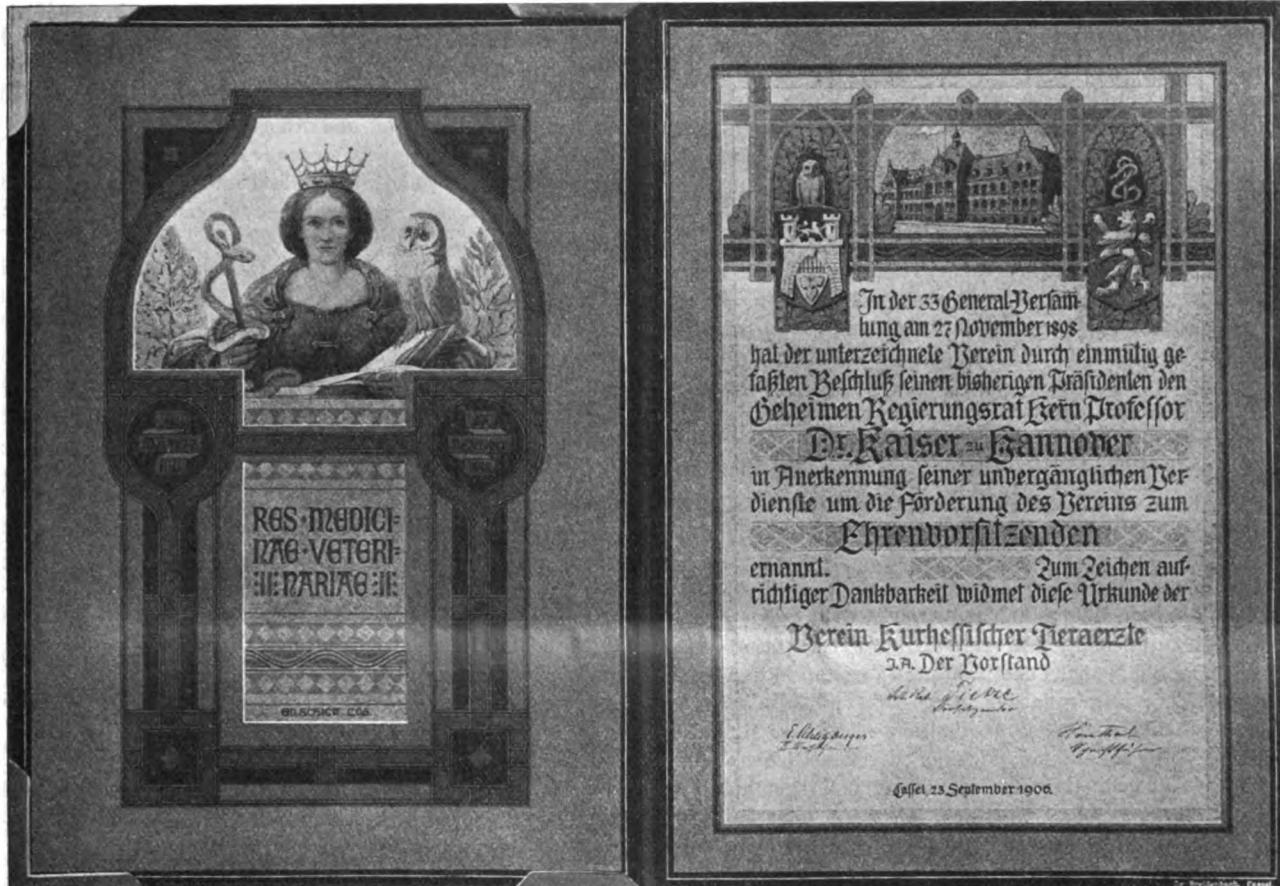 RES · MEDICI=
NAE · VETERI=
NARIAE
In der 33 General-Versam=
lung am 27 November 1898
hat der unterzeichnete Verein durch einmütig ge=
faßten Beschluß seinen bisherigen Präsidenten den
Geheimen Regierungsrat Herrn Professor
Dr. Kaiser zu Hannover
in Anerkennung seiner unvergänglichen Ver=
dienste um die Förderung des Vereins zum
Ehrenvorsitzenden
ernannt. Zum Zeichen auf=
richtiger Dankbarkeit widmet diese Urkunde der
Verein Kurhessischer Tieraerzte
I.A. Der Vorstand
Tietze
Vorsitzender
Schriftführer
Cassel, 23. September 1906.